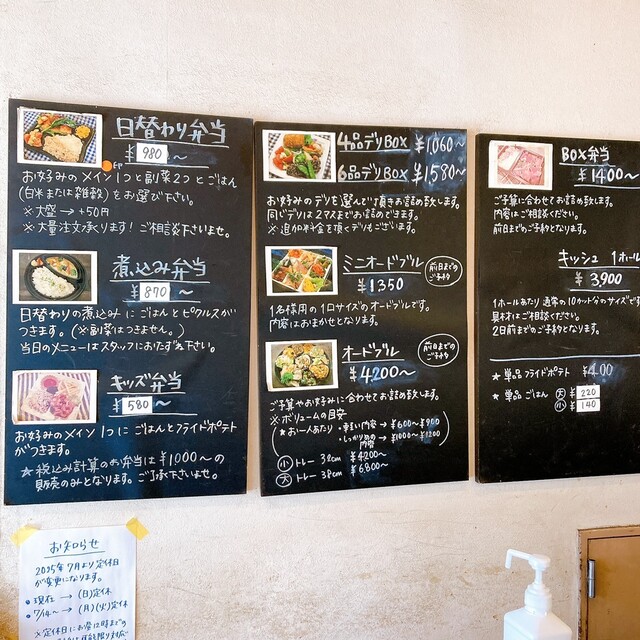 日替わり弁当
¥980〜
お好みのメイン1つと副菜2つとごはん
(白米または雑穀)をお選び下さい。
※大盛→+50円
※大量注文承ります!ご相談下さいませ。
煮込み弁当
¥870〜
日替わりの煮込みにごはんとピクルスが
つきます。(※副菜はつきません。)
当日のメニューはスタッフにおたずね下さい。
キッズ弁当
¥580〜
お好みのメイン1つにごはんとフライドポテト
がつきます。
★税込み計算のお弁当は¥1000〜の
販売のみとなります。ご了承下さいませ。
4品デリBOX ¥1,060〜
6品デリBOX ¥1,580〜
お好みのデリを選んで頂きお詰め致します。
同じデリは2マスまでお詰めできます。
※追加料金を頂くデリもございます。
ミニオードブル
¥1350
前日までの
ご予約
1名様用の1口サイズのオードブルです。
内容はおまかせとなります。
オードブル
¥4200〜
前日までの
ご予約
ご予算やお好みに合わせてお詰め致します。
※ボリュームの目安
(★お一人あたり・軽い内容→¥600〜¥900
・しっかりめの内容→¥1000〜¥1200
小 トレー 32cm ¥4200〜
大 トレー 38cm ¥6800〜
BOX弁当
¥1400〜
ご予算に合わせてお詰め致します。
内容はご相談ください。
前日までのご予約となります。
キッシュ 1ホール
¥3,900
1ホールあたり通常の10カット分のサイズです
具材はご相談ください。
2日前までのご予約となります。
★単品フライドポテト ¥400
★単品ごはん 大 ¥220
小 ¥140
お知らせ
2025年7月より定休日
が変更になります。
●現在→(日)定休
●7/14〜→(月)(火)定休
※定休日にお受け時までの